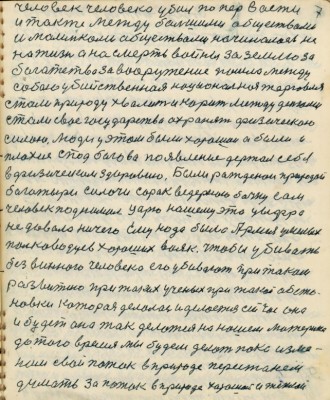 человек человека убил по пер вости
и также между большими обществами
и маленьким обществами начиналось не
на жизнь а на смерть войны за землю за
богатство за вооружение пошла между
собою убийственная национальная торговля
стали природу хвалить и корить между детьми
стали свое государство охранять физическою
силою, люди у этом были хорошия а были и
плохие с под богова появление держал себя
в физическом здоровию, были рожденая природой
богатыри силачи сорак ведерною бочку сам
человек поднимал царю нашему это у ведро
не давало ничего ему надо было Армия умных
полководцев хороших вояк. чтобы убивать
без винного человека его убивают при таком
развитию при таких ученых при такой обста-
новки которая делалась и делается сей час она
и будет она так делатся на нашем материке
до того время мы будем делать пока изме-
ним свой поток в природе перестанем
думать за поток в природе хорошой и тёплой